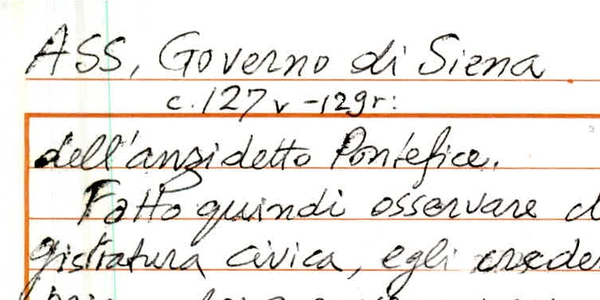 ASS, Governo di Siena
c. 127v - 129r:
dell'anzidetto Pontefice.
Fatto quindi osservare
gistratura civica, egli